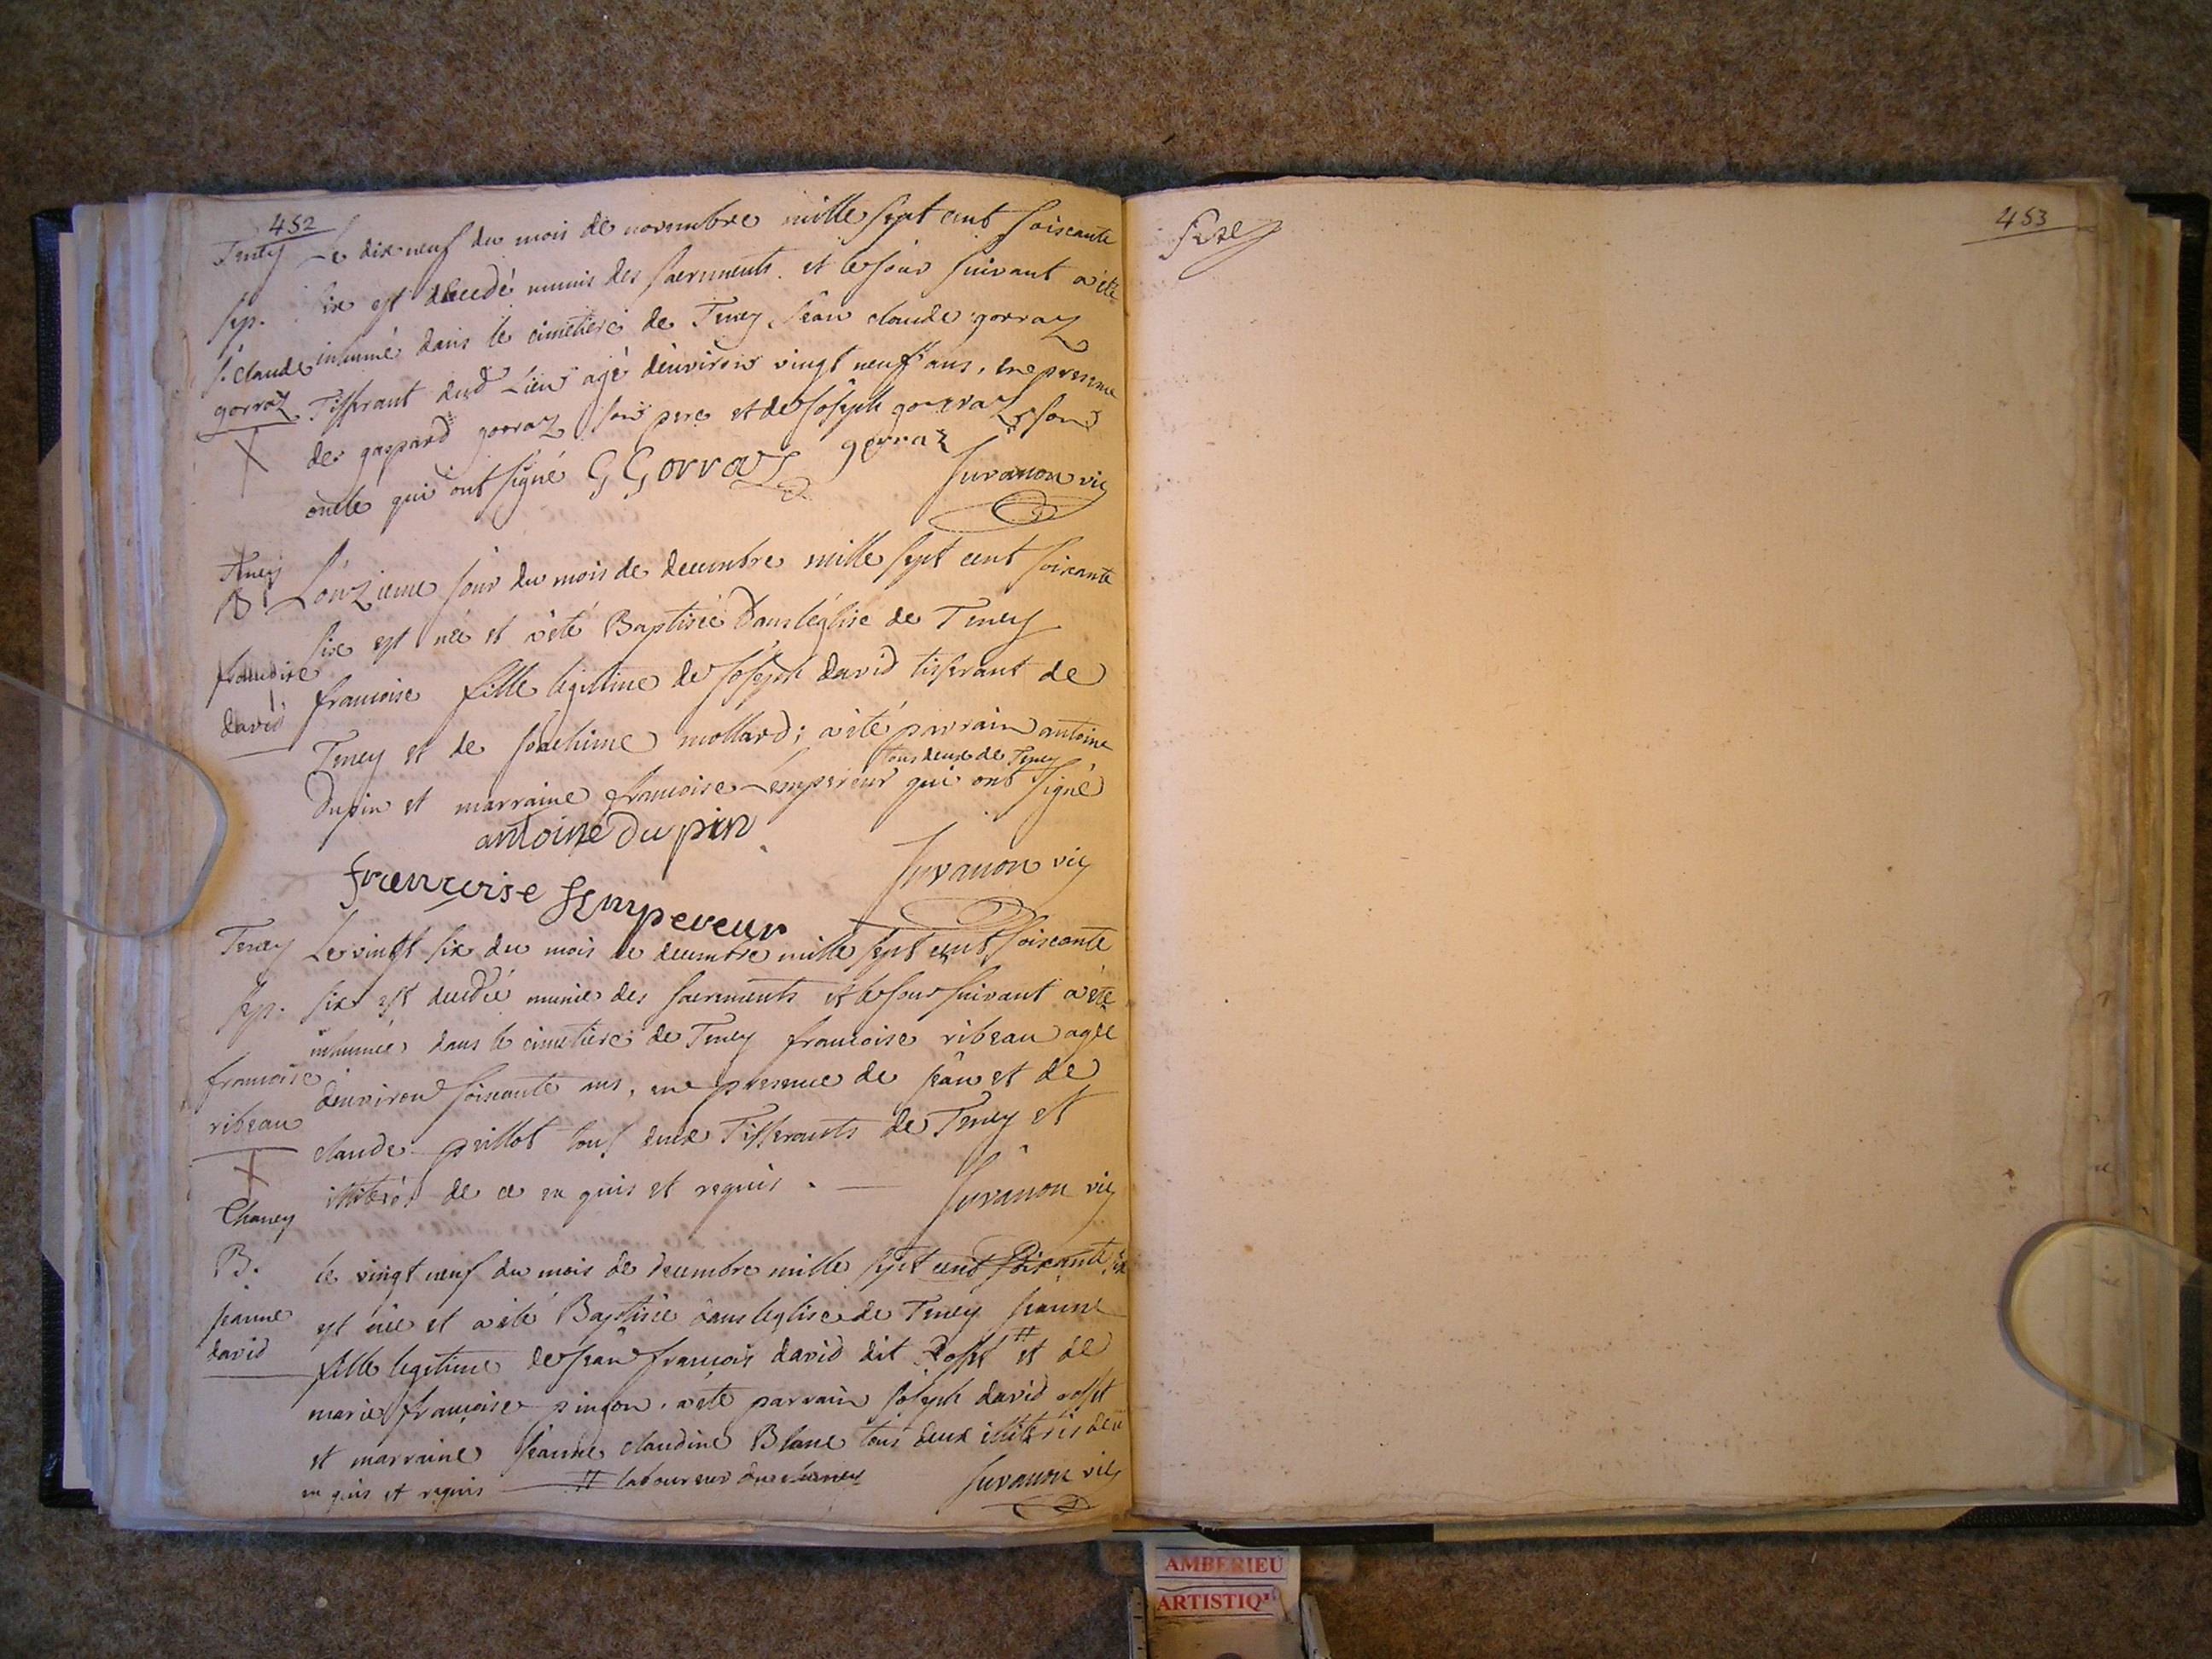 452
Teney
Sep.
j. claude
gorraz
Le dix neuf du mois de novembre mille sept cent soiscante
six est decedé munis des sacrements et le jour suivant a été
inhumé dans le cimetiere de Teney jean claude gorraz
Tisserant dud lieu agé d'environ vingt neuf ans, en presence
de gaspard gorraz son pere et de joseph gorraz son
oncle qui ont signé G Gorraz gorraz
Juvanon vic
Teney
B.
francoise
david
L'onzieme jour du mois de decembre mille sept cent soixante
six est née et a été Baptisée dans l'église de Teney
francoise fille légitime de joseph david tisserant de
Teney et de joachime mollard; a été parrain antoine
Dupin et marraine francoise Lempereur tous deux de Teney qui ont signé
antoine Dupin
francoise Lempereur
Juvanon vic
Teney
Sep.
francoise
ribeau
Le vingt six du mois de decembre mille sept cent soiscante
six est decedée munie des sacrements et le jour suivant a été
inhumée dans le cimetiere de Teney francoise ribeau agée
d'environ soiscante ans, en presence de jean et de
claude peillot tous deux Tisserants de Teney et
illiterés de ce en quis et requis.
Juvanon vic
Chaney
B.
jeanne
david
le vingt neuf du mois de decembre mille sept cent soixante six
est née et a été Baptisée dans l'eglise de Teney jeanne
fille legitime de jean francois david dit Rosset # et de
marie francoise pinçon. a été parrain joseph david rosset
et marraine jeanne claudine Blanc tous deux illiterés de ce
en quis et requis # laboureur de chaney
Juvanon vic
453
AMBERIEU
ARTISTIQ